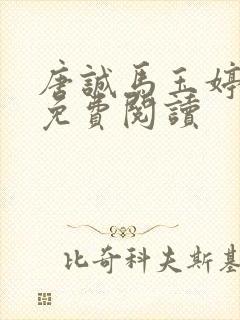 唐誠馬玉婷
免費閱讀
比奇科夫斯基